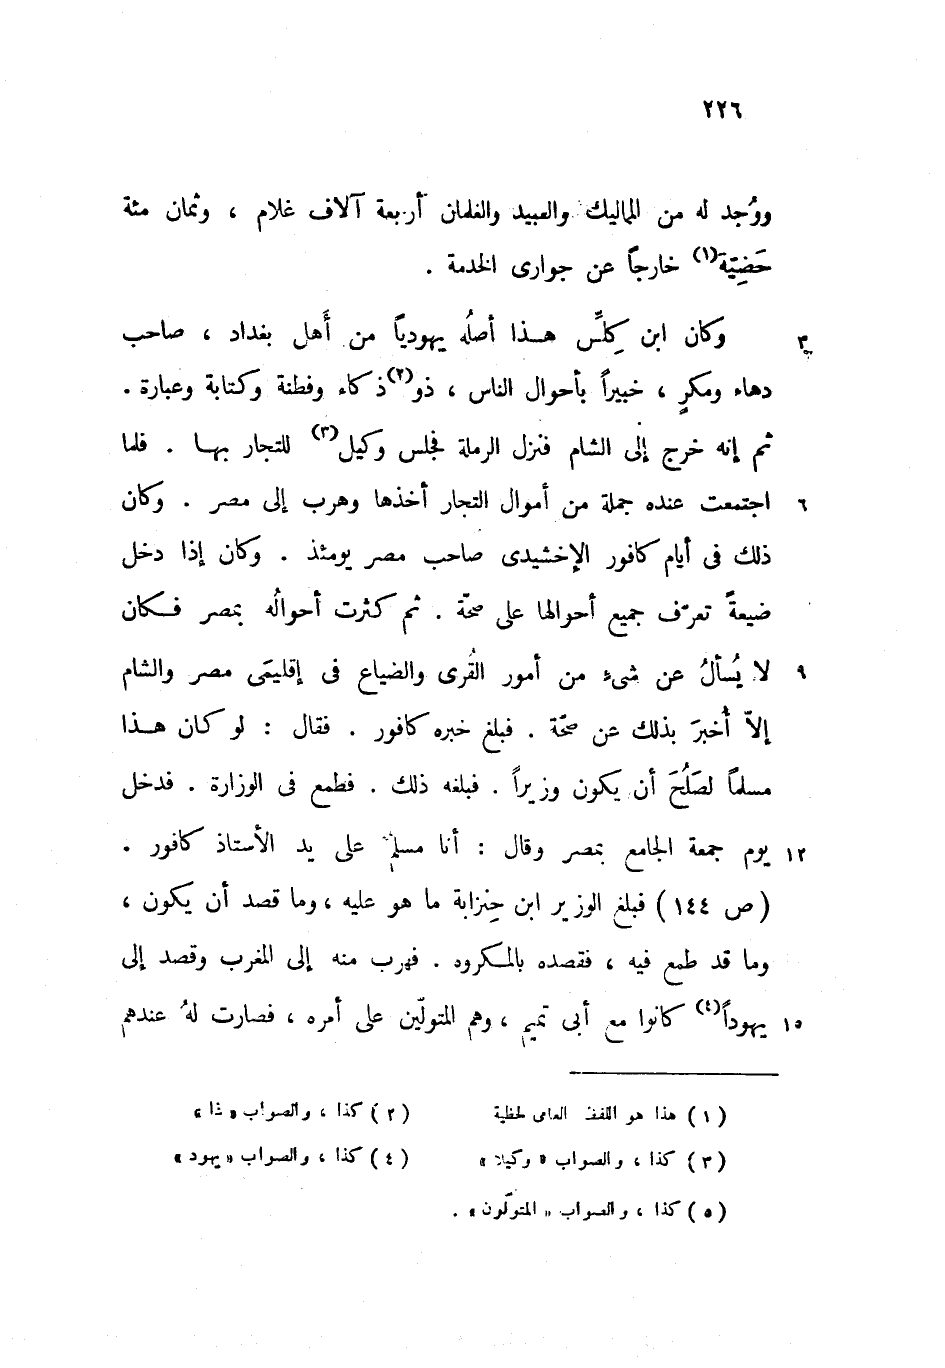 ٢٢٦
ووُجد له من المماليك والعبيد والغلمان أربعة آلاف غلام ، وثمان مئة
حَضِيّة(١) خارجاً عن جوارى الخدمة .
٣ وكان ابن كِلِّس هـذا أصلُه يهودياً من أَهل بغداد ، صاحب
دهاء ومكرٍ ، خبيراً بأحوال الناس ، ذو(٢) ذكاء وفطنة وكتابة وعبارة .
ثم إنه خرج إلى الشام فنزل الرملة فجلس وكيل(٣) للتجار بهـا . فلما
٦ اجتمعت عنده جملة من أموال التجار أخذها وهرب إلى مصر . وكان
ذلك فى أيام كافور الإخشيدى صاحب مصر يومئذ . وكان إذا دخل
ضيعةً تعرّف جميع أحوالها على صحّة . ثم كثرت أحوالُه بمصر فـكان
٩ لا يُسألُ عن شىء من أمور القُرى والضياع فى إقليمَى مصر والشام
إلاّ أُخبرَ بذلك عن صحّة . فبلغ خبره كافور . فقال : لو كان هـذا
مسلماً لصَلُحَ أن يكون وزيراً . فبلغه ذلك . فطمع فى الوزارة . فدخل
١٢ يوم جمعة الجامع بمصر وقال : أنا مسلم على يد الأستاذ كافور .
( ص ١٤٤ ) فبلغ الوزير ابن حِنزابة ما هو عليه ، وما قصد أن يكون ،
وما قد طمع فيه ، فقصده بالمكروه . فهرب منه إلى المغرب وقصد إلى
١٥ يهوداً(٤) كانوا مع أبى تميم ، وهم المتولّين على أمره ، فصارت لهُ عندهم
( ١ ) هذا هو اللفظ العامى لحظية ( ٢ ) كذا ، والصواب « ذا »
( ٣ ) كذا ، والصواب « وكيلا » ( ٤ ) كذا ، والصواب « يهود »
( ٥ ) كذا ، والصواب « المتولّون » .